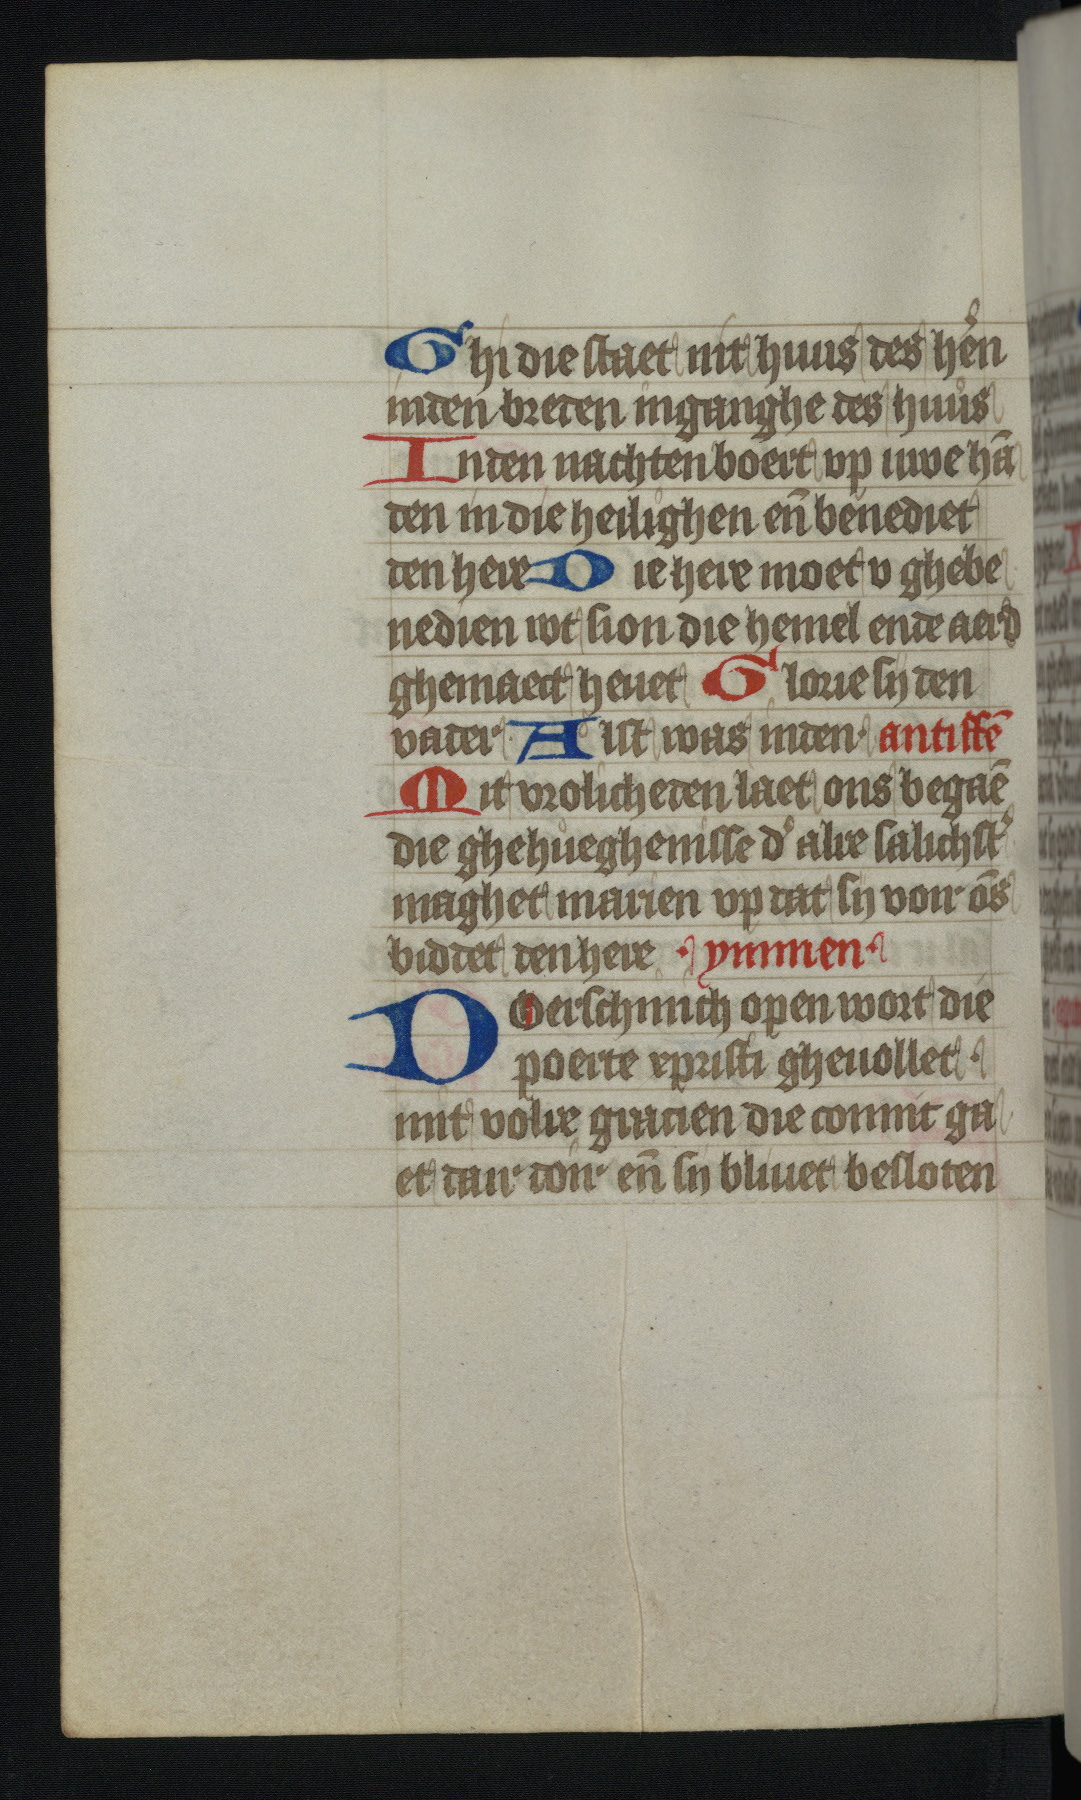 Ghi die staet int huus des he͛n
inden breden inganghe des huus
Inden nachten boert vp uwe hā
den in die heilighen eñ benediet
den here Die here moet v ghebe
nedien wt sion die hemel ende aerd
ghemaect heuet Glorie sij den
vader Alst was inden antiffē
Mit vrolicheden laet ons begaē
die ghehueghenisse d͛ alre salichst͛
maghet marien vp dat sij voir ōs
biddet den here ymmen
Doerschinich open wort die
poerte xpristi gheuollet
mit volre gracien die conint ga
et dair doir eñ sij bliuet besloten